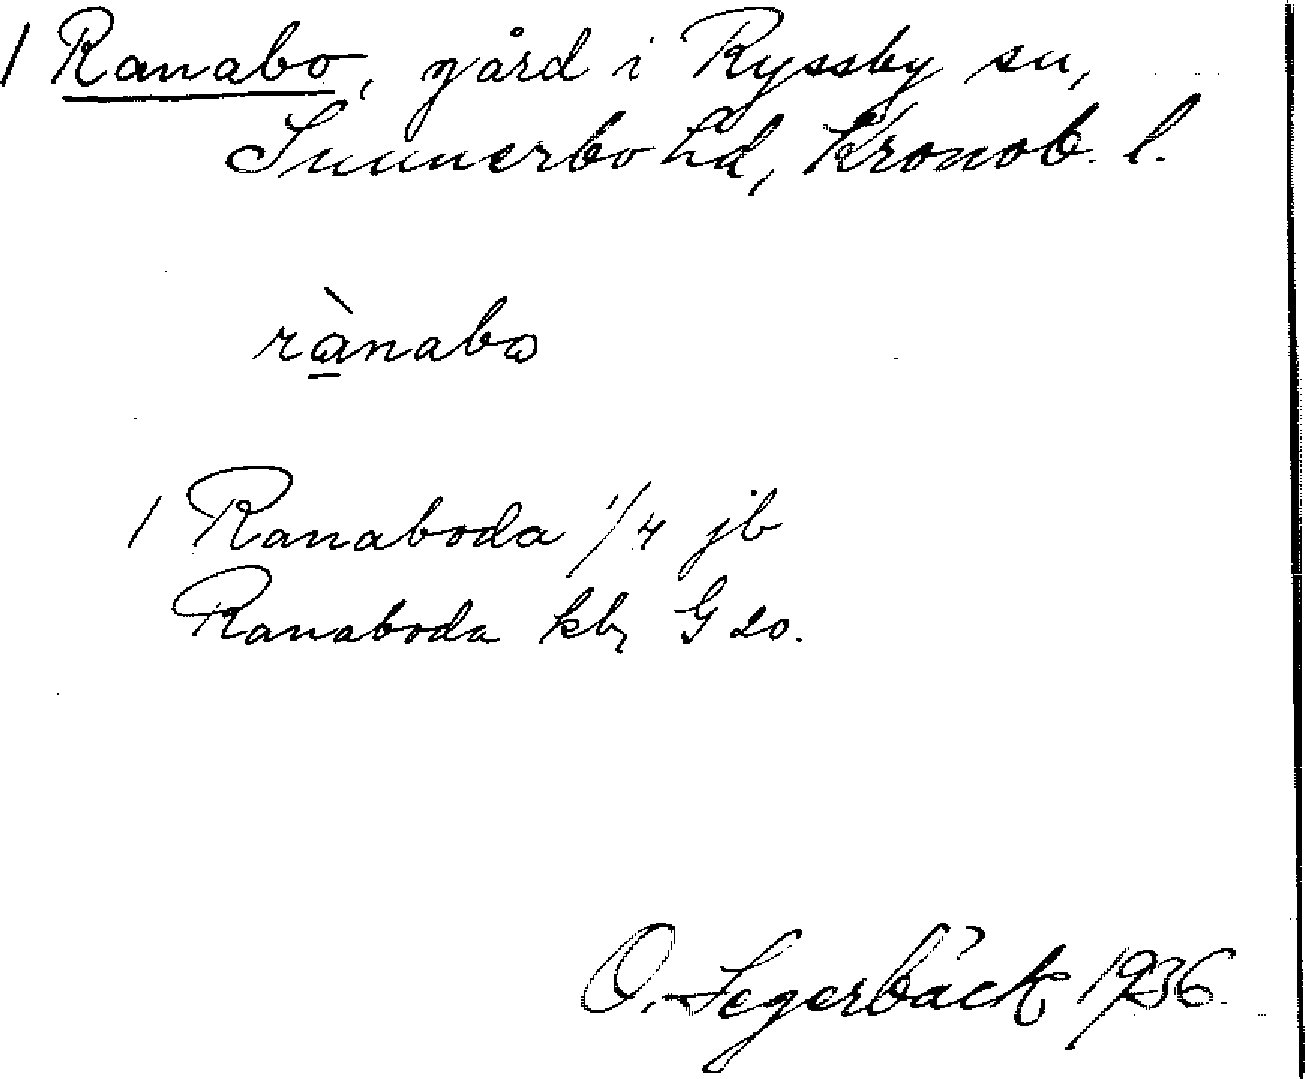 1 Ranabo, gård i Ryssby sn,
Sunnerbo hd, Kronob. l.
rànabo
1 Ranaboda 1/4 jb
Ranaboda kbr G 20.
O. Segerbäck 1936.